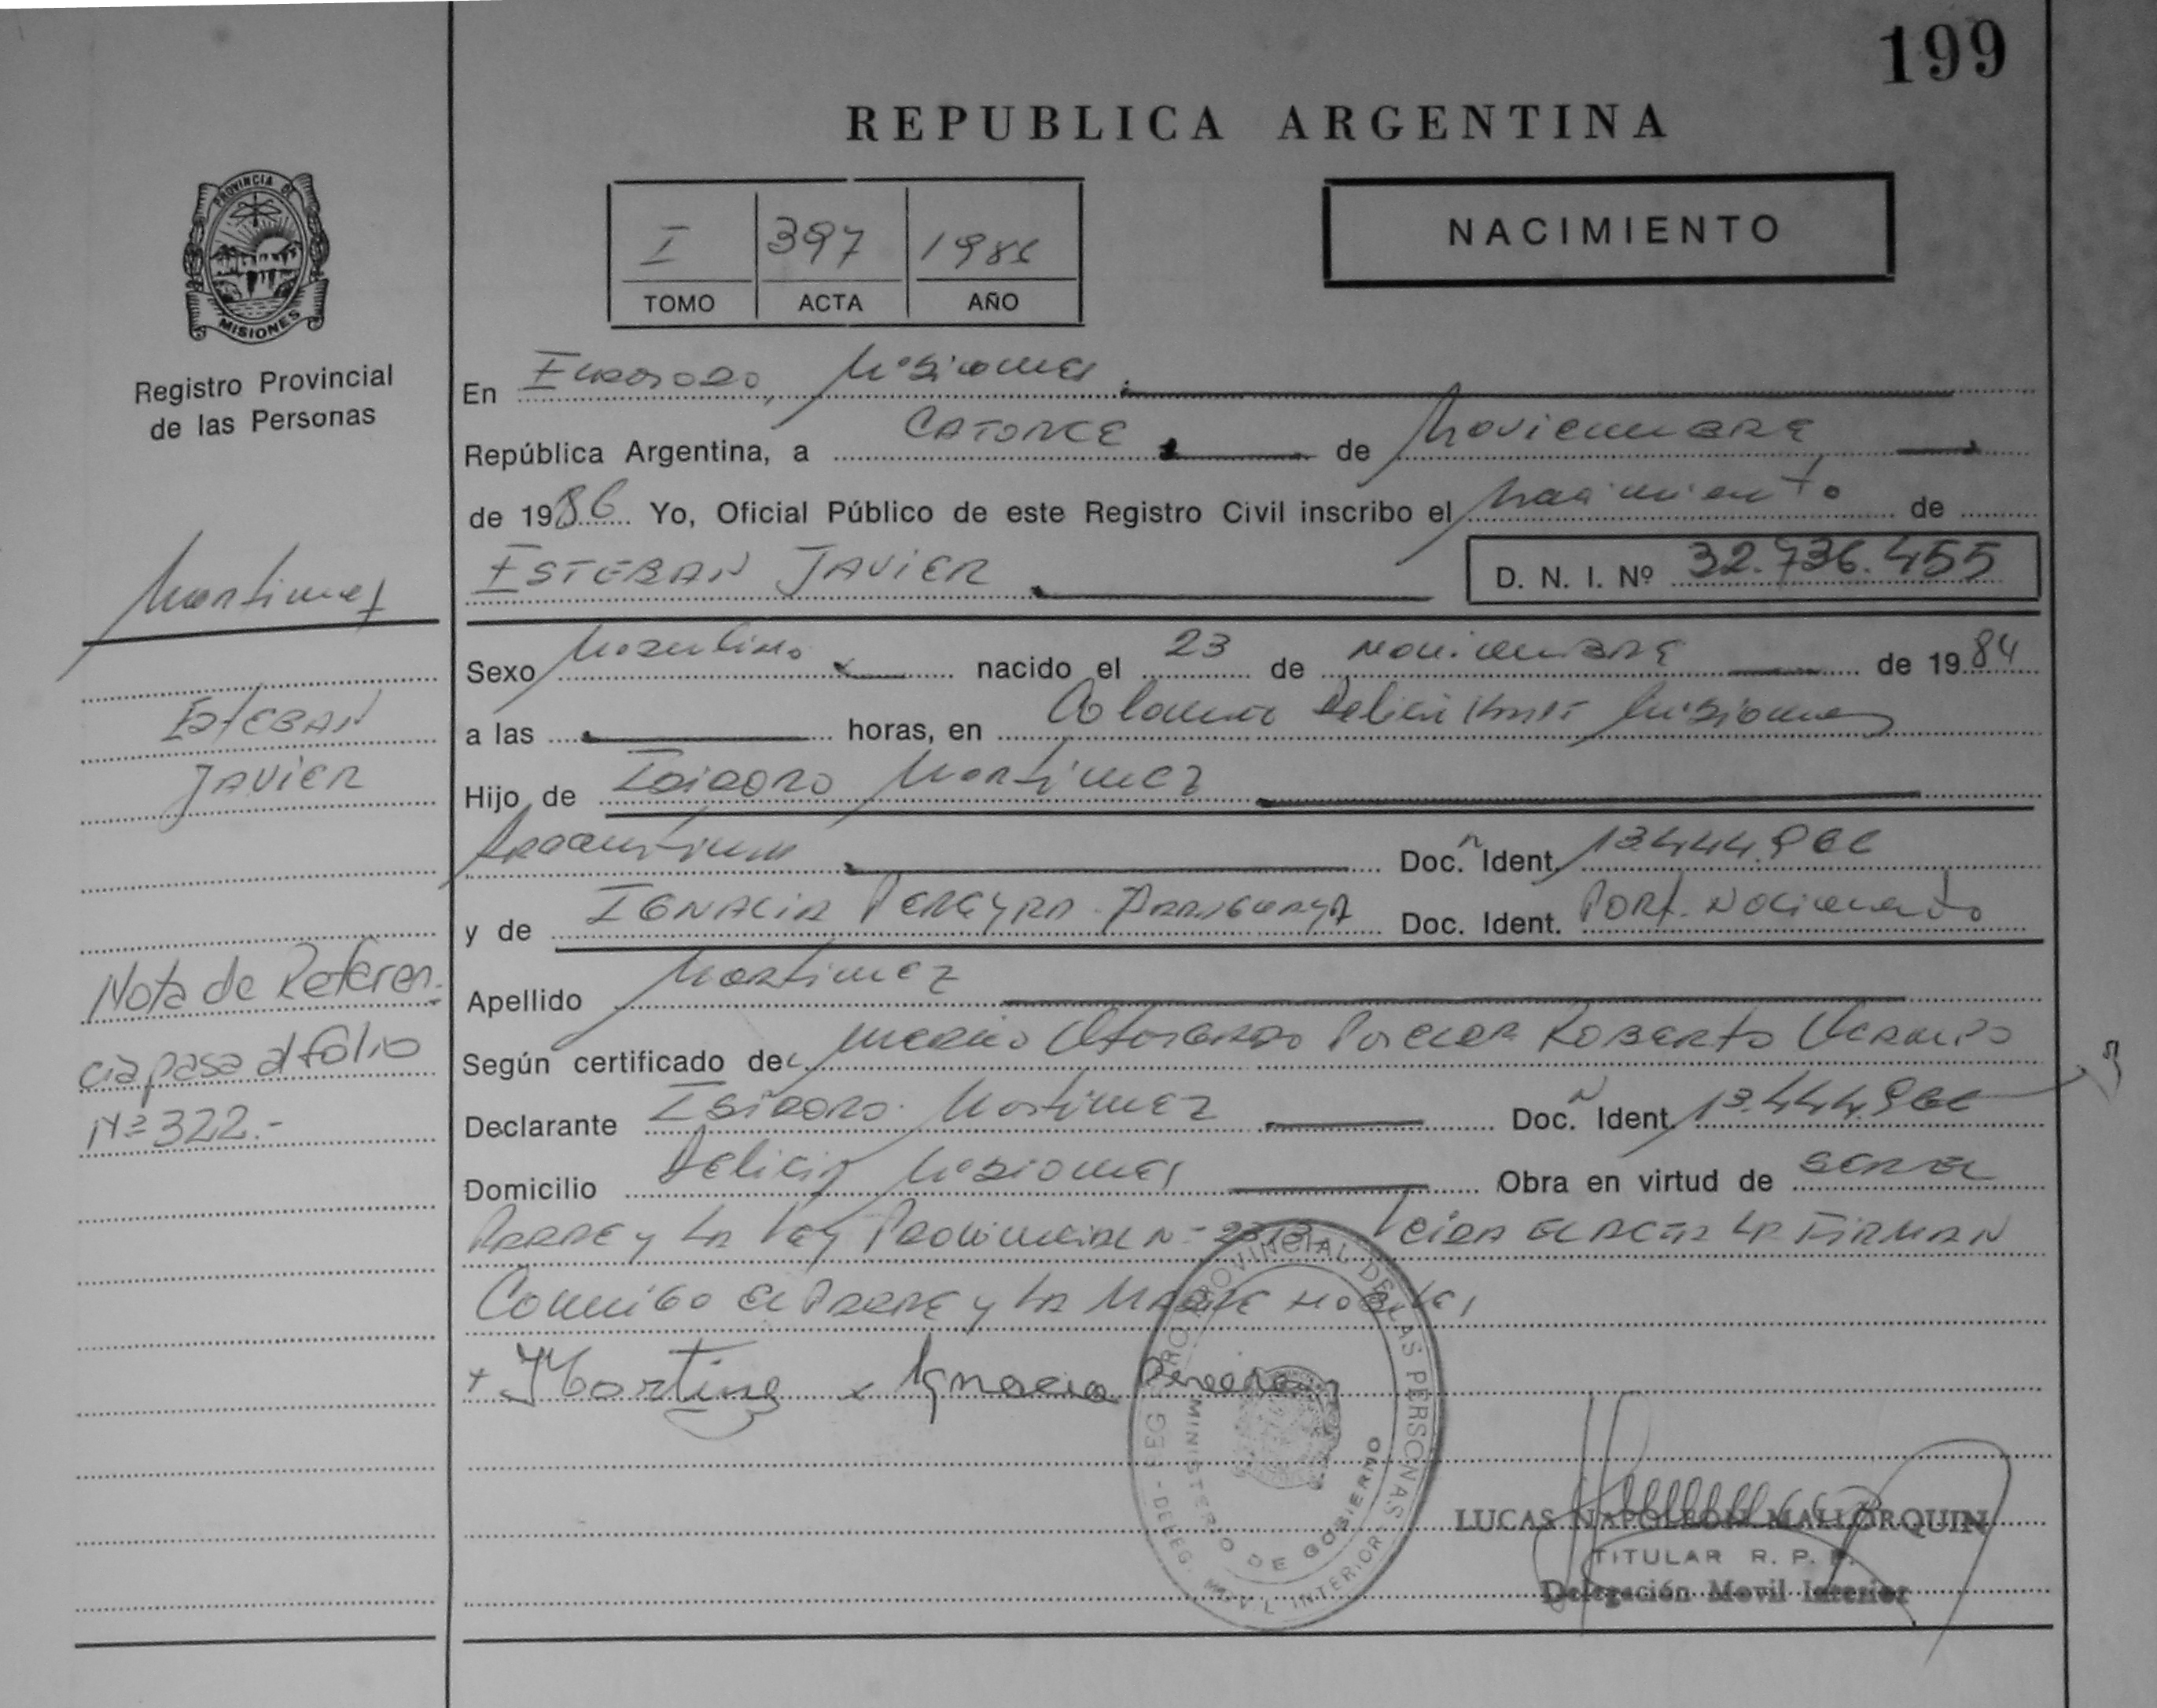 199
REPUBLICA ARGENTINA
I 397 1986
TOMO ACTA AÑO
NACIMIENTO
PROVINCIA DE
MISIONES
Registro Provincial
de las Personas
En Eldorado, Misiones
República Argentina, a CATORCE de Noviembre
de 1986 Yo, Oficial Público de este Registro Civil inscribo el Nacimiento de
ESTEBAN JAVIER
D. N. I. Nº 32.736.455
Martinez
ESTEBAN
JAVIER
Nota de Referen-
cia pasa al folio
Nº 322.-
Sexo Masculino nacido el 23 de Noviembre de 1984
a las horas, en Colonia Delicia Misiones
Hijo de Isidoro Martinez
Argentino Doc. Ident. 13.444.966
y de IGNACIA PEREYRA Doc. Ident. Part. Nacimiento
Apellido Martinez
Según certificado de Medico Otorgado Por ROBERTO
Declarante Isidoro Martinez Doc. Ident. 13.444.966
Domicilio Delicia Misiones Obra en virtud de SER EL
PADRE y LA Ley PROVINCIAL Nº LEIDA EL ACTA LA FIRMAN
Conmigo el PADRE y LA MADRE
+ IMartinez x Ignacia Pereira
REGISTRO PROVINCIAL DE LAS PERSONAS
MINISTERIO DE GOBIERNO
DELEG. MOVIL INTERIOR
LUCAS NAPOLEON MALLORQUIN
TITULAR R. P. P.
Delegación Movil Interior